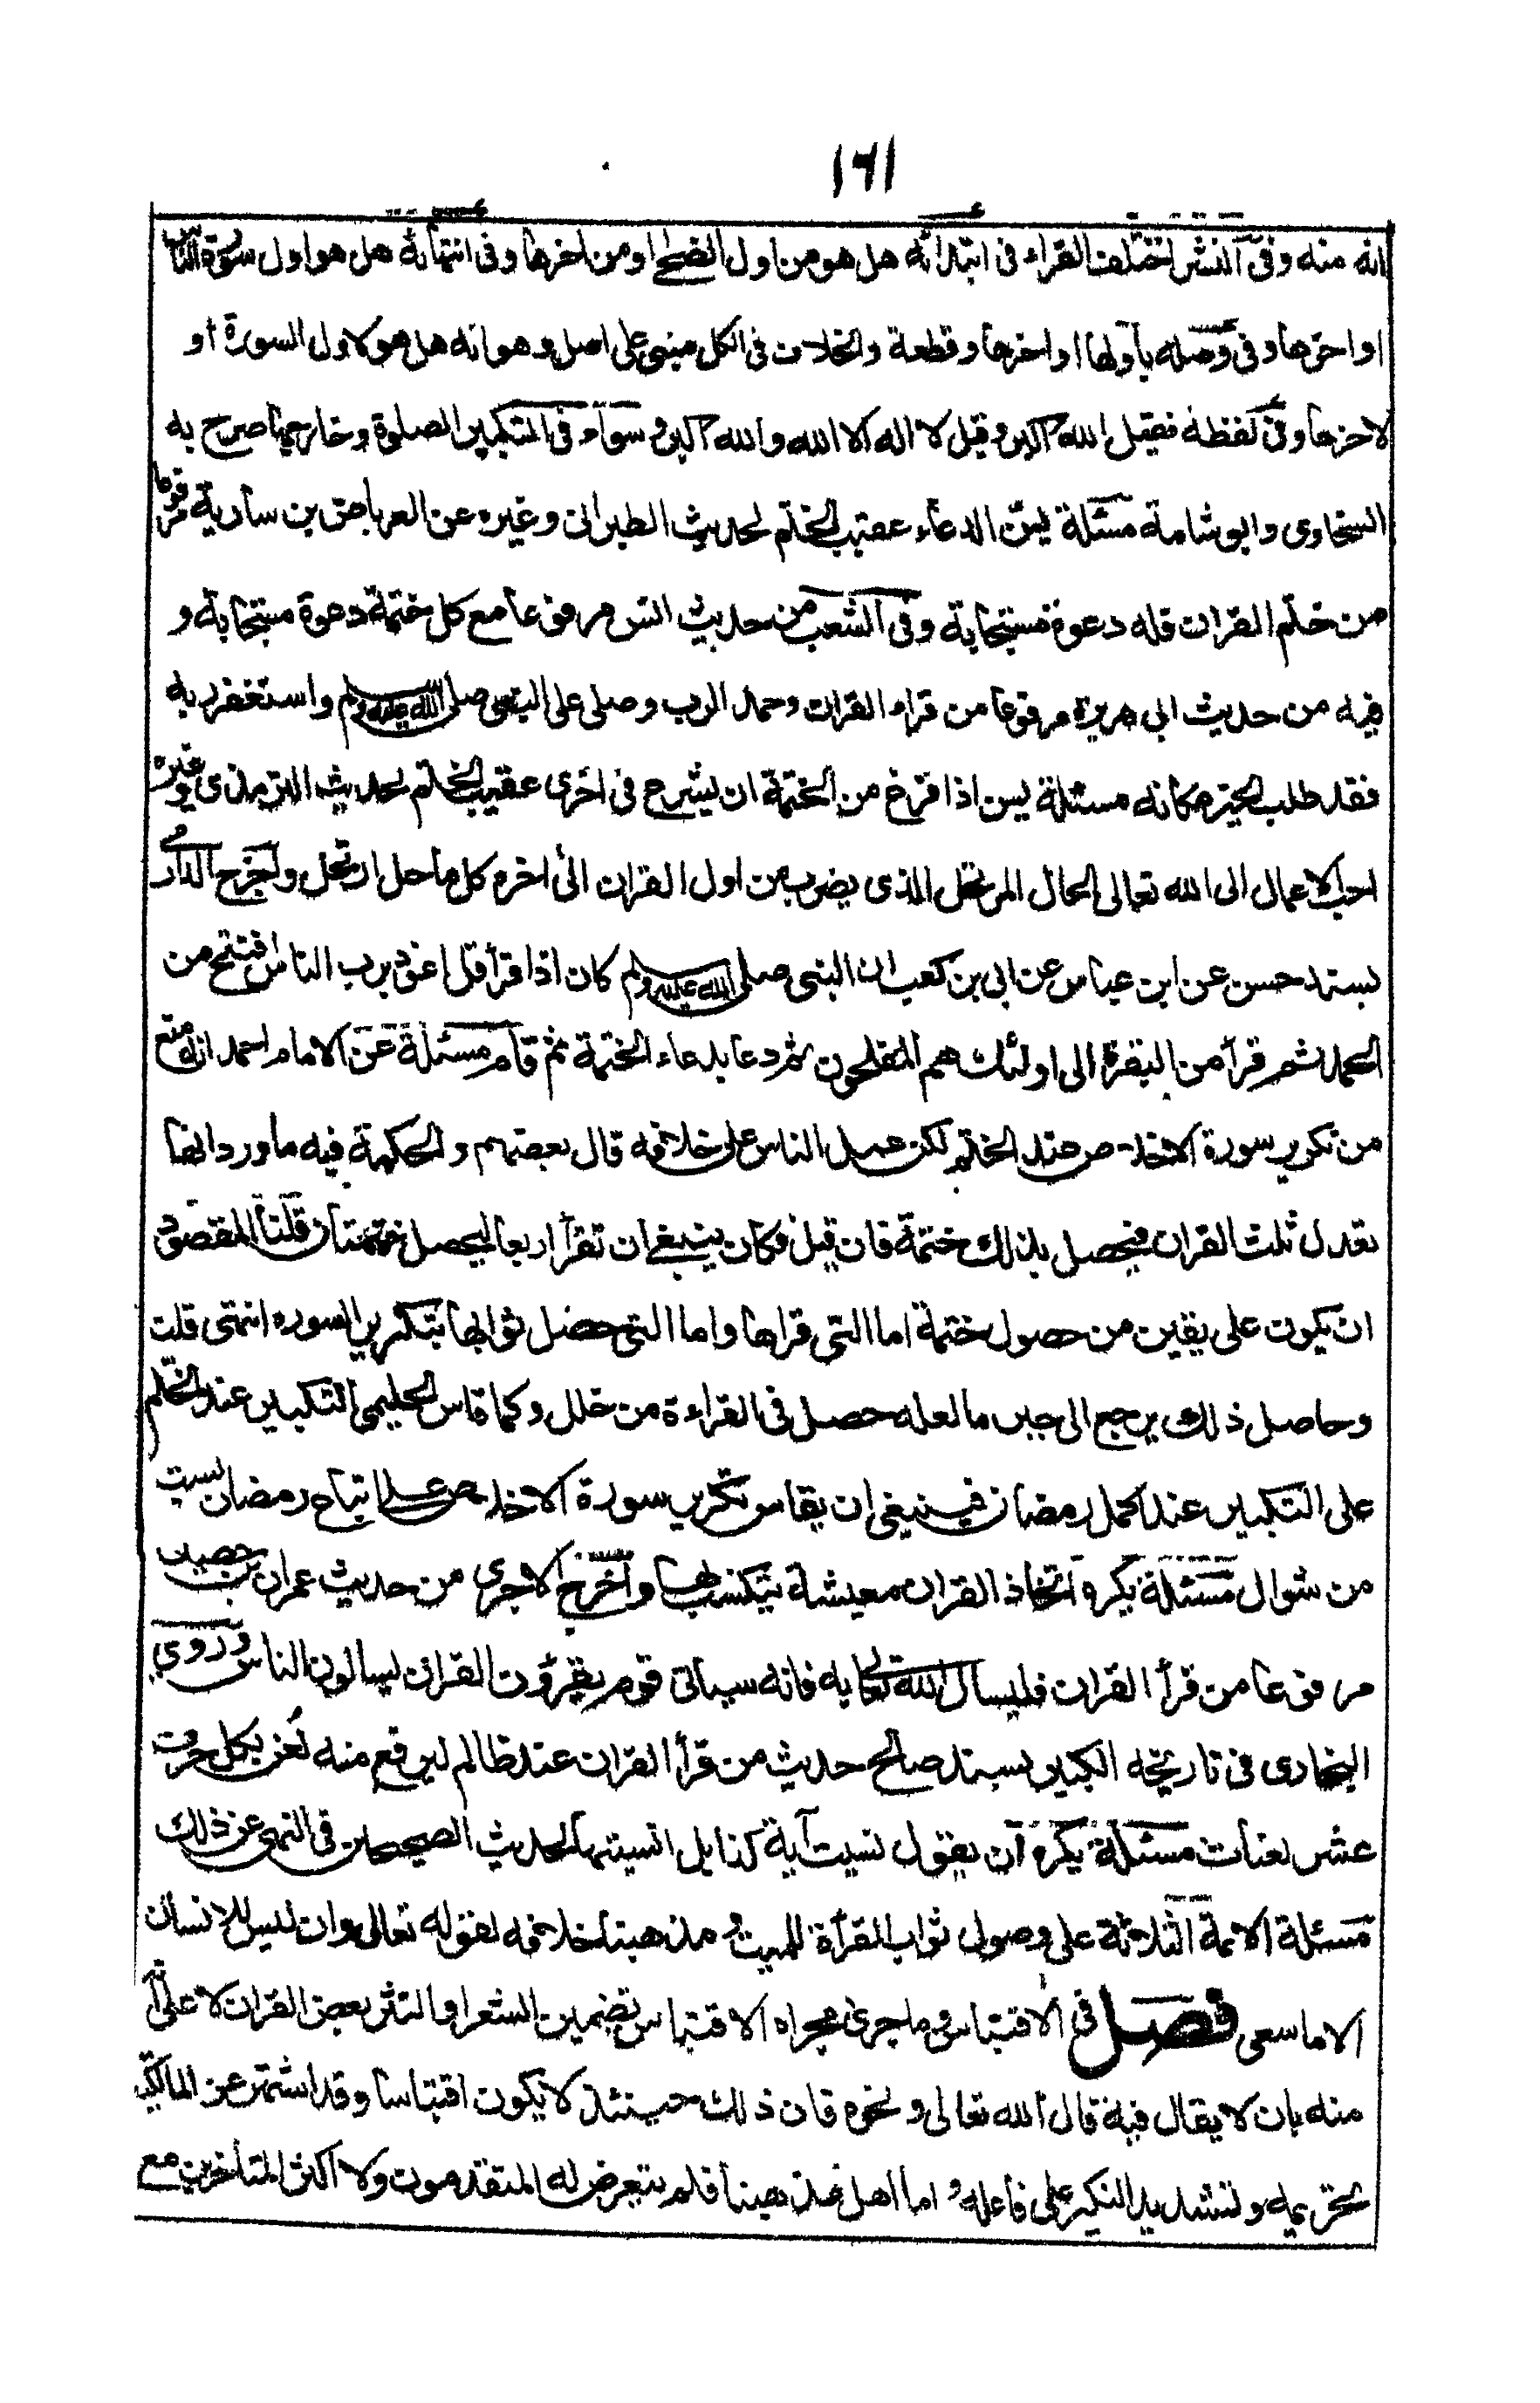 ١٦١
انه منه وفى النشر اختلف القراء فى ابتدائه هل هو من اول الضحى او من اخرها وفى انتهائه هل هو اول سورة الناس
او اخرها وفى وصله باولها او اخرها وقطعة والخلاف فى الكل مبنى على اصل وهو انه هل هو لاول السورة او
لاخرها وفى لفظه فقيل الله اكبر وقيل لا اله الا الله والله اكبر وسواء فى التكبير الصلوة وخارجها صرح به
السخاوى وابو شامة مسئلة يسن الدعاء عقيب الختم لحديث الطبرانى وغيره عن العرباض بن سارية مرفوعا
من ختم القران فله دعوة مستجابة وفى الشعب من حديث انس مرفوعا مع كل ختمة دعوة مستجابة و
فيه من حديث ابى هريرة مرفوعا من قراء القران وحمد الرب وصلى على النبى صلى الله عليه وسلم واستغفر ربه
فقد طلب الخير مكانه مسئلة يسن اذا فرغ من الختمة ان يشرع فى اخرى عقيب الختم لحديث الترمذى وغيره
احب الاعمال الى الله تعالى الحال المرتحل الذى يضرب من اول القران الى اخره كل ما حل ارتحل واخرج الدارمى
بسند حسن عن ابن عباس عن ابى بن كعب ان النبى صلى الله عليه وسلم كان اذا قرأ قل اعوذ برب الناس افتتح من
الحمد ثم قرأ من البقرة الى اولئك هم المفلحون ثم دعا بدعاء الختمة ثم قام مسئلة عن الامام احمد انه منع
من تكرير سورة الاخلاص عند الختم لكن عمل الناس على خلافه قال بعضهم والحكمة فيه ما ورد انها
تعدل ثلث القران فيحصل بذلك ختمة فان قيل فكان ينبغى ان تقرأ اربعا ليحصل ختمتان قلنا المقصود
ان يكون على يقين من حصول ختمة اما التى قراها واما التى حصل ثوابها بتكرير السوره انتهى قلت
وحاصل ذلك يرجع الى جبر ما لعله حصل فى القراءة من خلل وكما قاس الحليمى التكبير عند الختم
على التكبير عند اكمال رمضان فينبغى ان يقاس تكرير سورة الاخلاص على اتباع رمضان بست
من شوال مسئلة يكره اتخاذ القران معيشة يتكسب بها واخرج الاجرى من حديث عمران بن حصين
مرفوعا من قرأ القران فليسال الله تعالى به فانه سياتى قوم يقرؤن القران ليسالون الناس وروى
البخارى فى تاريخه الكبير بسند صالح حديث من قرأ القران عند ظالم ليرفع منه لعن بكل حرف
عشر لعنات مسئلة يكره ان يقول نسيت آية كذا بل انسيتها لحديث الصحيحين فى النهى عن ذلك
مسئلة الائمة الثلاثة على وصول ثواب القرأة للميت و مذهبنا خلافه لقوله تعالى وان ليس للانسان
الا ما سعى فصل فى الاقتباس وما جرى مجراه الاقتباس تضمين الشعر او النثر بعض القران لا على انه
منه بان لا يقال فيه قال الله تعالى ونحوه فان ذلك حينئذ لا يكون اقتباسا وقد اشتهر عن المالكية
تحريمه وتشديد النكير على فاعله و اما اهل مذهبنا فلم يتعرض له المتقدمون ولا اكثر المتأخرين مع